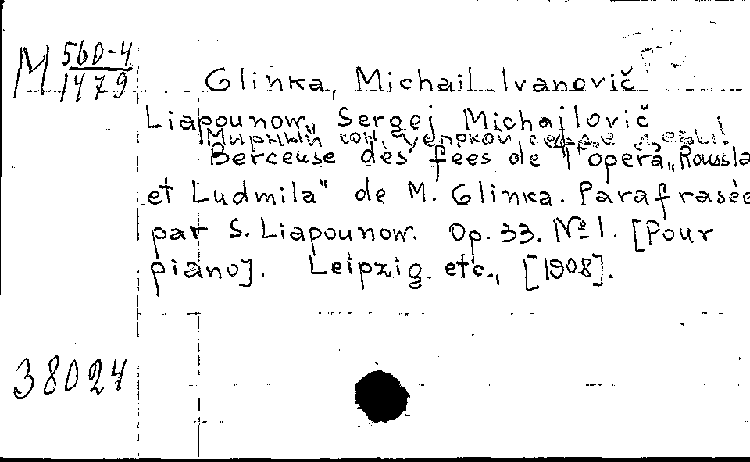 M 560-4
1479
Glinka, Michail Ivanovič
Liapounow, Sergej Michajlovič
Мирный сон,
Berceuse des fees de l'opera „Roussla
et Ludmila" de M. Glinka. Parafrasée
par S. Liapounow. Op. 33. № 1. [Pour
piano]. Leipzig etc., [1908].
38024